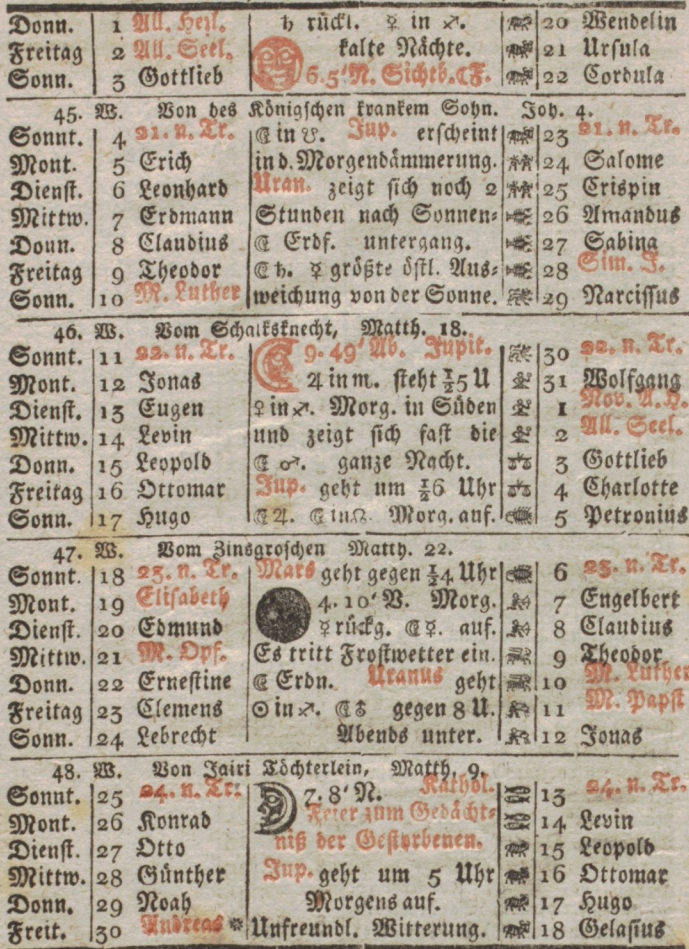 Donn. 1 All. Heil. ♄ rückl. ☿ in ♐. 20 Wendelin
Freitag 2 All. Seel. kalte Nächte. 21 Ursula
Sonn. 3 Gottlieb 6. 5' N. Sichtb. ☾ F. 22 Cordula
45. W. Von des Königschen krankem Sohn. Joh. 4.
Sonnt. 4 21. n. Tr. ☾ in ☋. Jup. erscheint 23 21. n. Tr.
Mont. 5 Erich in d. Morgendämmerung. 24 Salome
Dienst. 6 Leonhard Uran. zeigt sich noch 2 25 Crispin
Mittw. 7 Erdmann Stunden nach Sonnen= 26 Amandus
Donn. 8 Claudius ☾ Erdf. untergang. 27 Sabina
Freitag 9 Theodor ☾ ♄. ☿ größte östl. Aus= 28 Sim. J.
Sonn. 10 M. Luther weichung von der Sonne. 29 Narcissus
46. W. Vom Schalksknecht, Matth. 18.
Sonnt. 11 22. n. Tr. 9. 49' Ab. Jupit. 30 22. n. Tr.
Mont. 12 Jonas ♃ in m. steht ½5 U 31 Wolfgang
Dienst. 13 Eugen ♀ in ♐. Morg. in Süden 1 Nov. A. H.
Mittw. 14 Levin und zeigt sich fast die 2 All. Seel.
Donn. 15 Leopold ☾ ♂. ganze Nacht. 3 Gottlieb
Freitag 16 Ottomar Jup. geht um ½6 Uhr 4 Charlotte
Sonn. 17 Hugo ☾ ♃. ☾ in ☊. Morg. auf. 5 Petronius
47. W. Vom Zinsgroschen Matth. 22.
Sonnt. 18 23. n. Tr. Mars geht gegen ½4 Uhr 6 23. n. Tr.
Mont. 19 Elisabeth 4. 10' V. Morg. 7 Engelbert
Dienst. 20 Edmund ☿ rückg. ☾ ☿. auf. 8 Claudius
Mittw. 21 M. Opf. Es tritt Frostwetter ein. 9 Theodor
Donn. 22 Ernestine ☾ Erdn. Uranus geht 10 M. Luther
Freitag 23 Clemens ☉ in ♐. ☾ ♅ gegen 8 U. 11 M. Papst
Sonn. 24 Lebrecht Abends unter. 12 Jonas
48. W. Von Jairi Töchterlein, Matth. 9.
Sonnt. 25 24. n. Tr. 7. 8' N. Kathol. 13 24. n. Tr.
Mont. 26 Konrad Feier zum Gedächt= 14 Levin
Dienst. 27 Otto niß der Gestorbenen. 15 Leopold
Mittw. 28 Günther Jup. geht um 5 Uhr 16 Ottomar
Donn. 29 Noah Morgens auf. 17 Hugo
Freit. 30 Andreas * Unfreundl. Witterung. 18 Gelasius